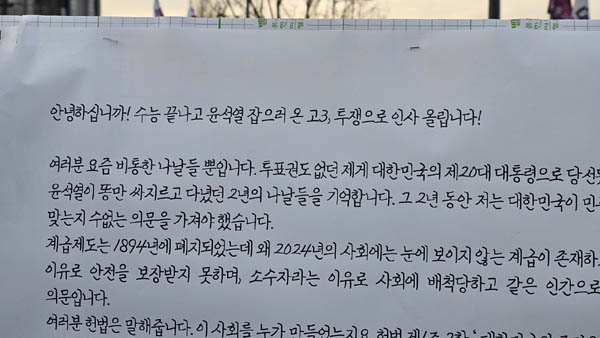 안녕하십니까! 수능 끝나고 윤석열 잡으러 온 고3, 투쟁으로 인사 올립니다!
여러분 요즘 비통한 나날들 뿐입니다. 투표권도 없던 제게 대한민국의 제20대 대통령으로 당선
윤석열이 똥만 싸지르고 다녔던 2년의 나날들을 기억합니다. 그 2년 동안 저는 대한민국이
맞는지 수없는 의문을 가져야 했습니다.
계급제도는 1894년에 폐지되었는데 왜 2024년의 사회에는 눈에 보이지 않는 계급이 존재하
이유로 안전을 보장받지 못하며, 소수자라는 이유로 사회에 배척당하고 같은 인간으로
의문입니다.
여러분 헌법은 말해줍니다. 이 사회를 누가 만들었는지요. 헌법 제1조 2항